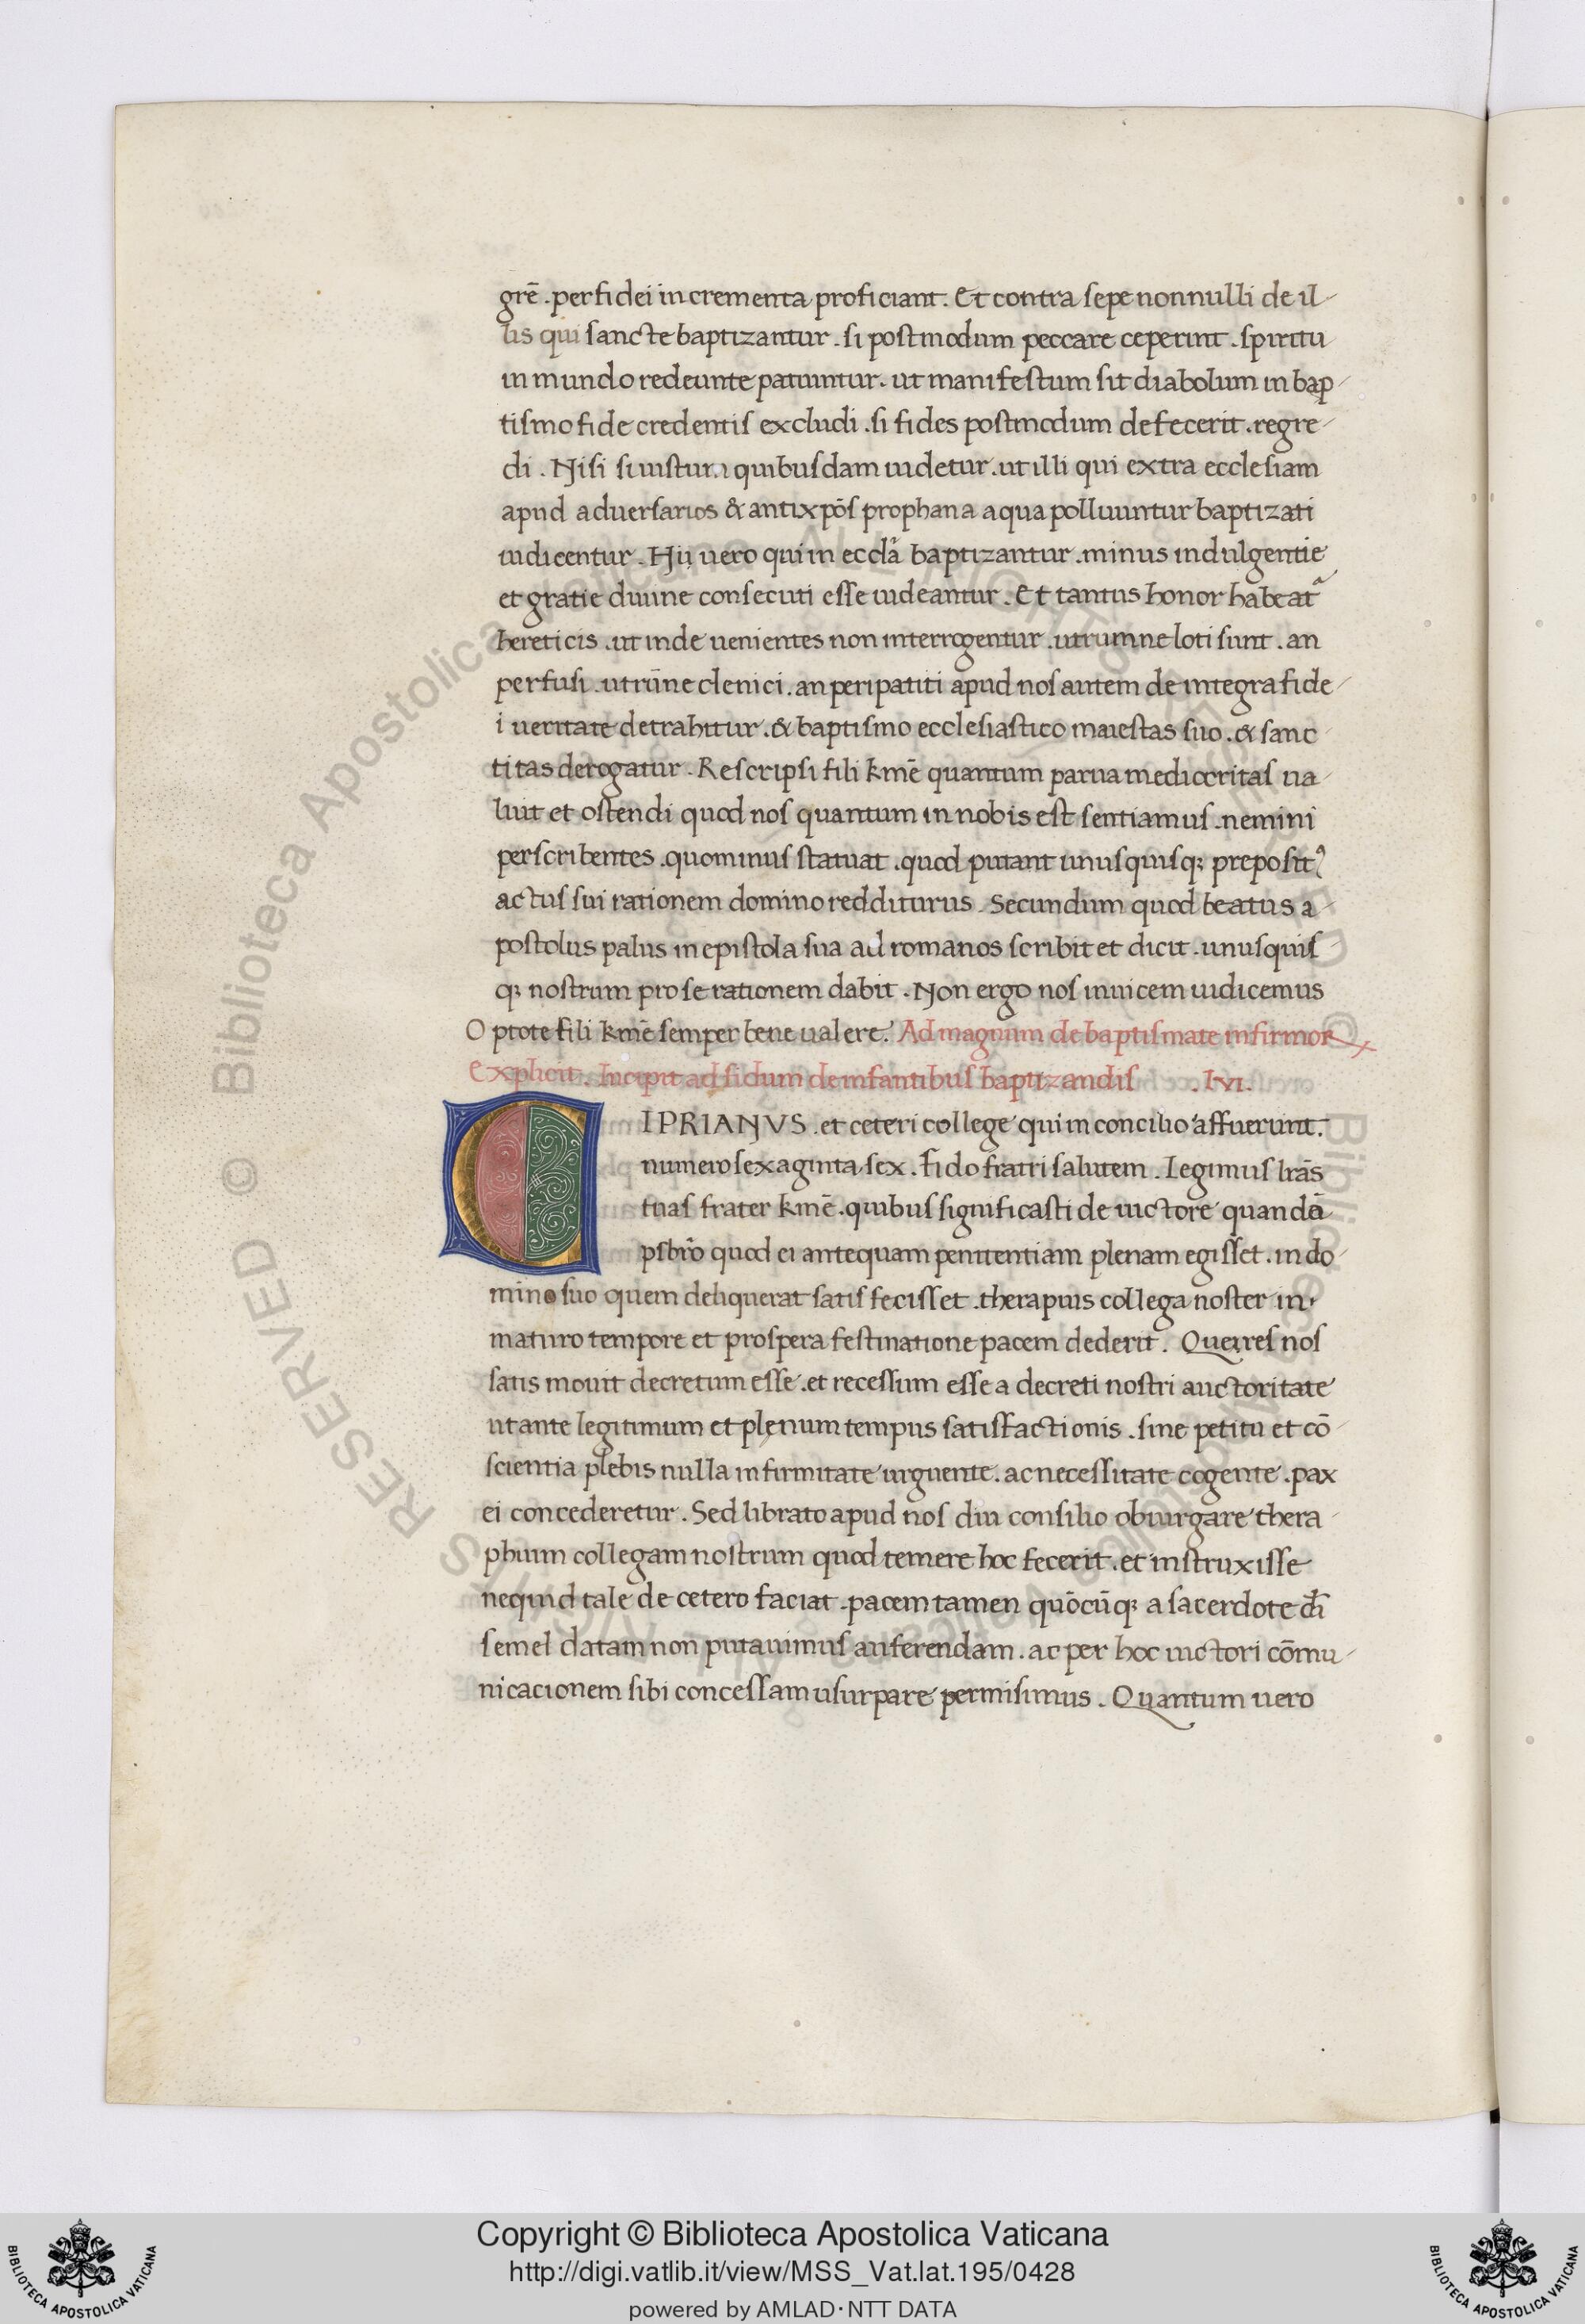 grē . per fidei incrementa proficiant . Et contra sepe nonnulli de il-
lis qui sancte baptizantur . si postmodum peccare ceperint . spiritu
inmundo redeunte patiuntur . ut manifestum sit diabolum in bap-
tismo fide credentis excludi . si fides postmodum defecerit . regre-
di . Nisi si iustum quibusdam uidetur . ut illi qui extra ecclesiam
apud aduersarios & antixpōs prophana aqua polluuntur baptizati
iudicentur . Hii uero qui in eccl̄a baptizantur . minus indulgentie
et gratie diuine consecuti esse uideantur . Et tantus honor habeat᷑
hereticis . ut inde uenientes non interrogentur . utrumne loti sunt . an
perfusi . utrūne clenici . an peripatiti apud nos autem de integra fide-
i ueritate detrahitur . & baptismo ecclesiastico maiestas suo . & sanc-
titas derogatur . Rescripsi fili kmē quantum parua mediocritas ua-
luit et ostendi quod nos quantum in nobis est sentiamus . nemini
perscribentes . quominus statuat . quod putant unusquisq; preposit9
actus sui rationem domino redditurus . Secundum quod beatus a-
postolus palus in epistola sua ad romanos scribit et dicit . unusquis-
q; nostrum pro se rationem dabit . Non ergo nos inuicem iudicemus
O ptote fili kmē semper bene ualere . Ad magnum de baptismate infirmoꝝ
Explicit . Incipit ad fidum de infantibus baptizandis . lvi .
CIPRIANVS . et ceteri college qui in concilio affuerunt .
numero sexaginta sex . Fido fratri salutem . Legimus lrās
tuas frater kmē . quibus significasti de uictore quandā
psbrō quod ei antequam penitentiam plenam egisset . in do-
mino suo quem deliquerat satis fecisset . therapius collega noster in-
maturo tempore et prospera festinatione pacem dederit . Que res nos
satis mouit decretum esse . et recessum esse a decreti nostri auctoritate
ut ante legitimum et plenum tempus satisfactionis . sine petitu et cō-
scientia plebis nulla infirmitate urguente . ac necessitate cogente . pax
ei concederetur . Sed librato apud nos diu consilio obiurgare thera-
phium collegam nostrum quod temere hoc fecerit . et instruxisse
nequid tale de cetero faciat . pacem tamen quōcūq; a sacerdote dī
semel datam non putauimus auferendam . ac per hoc uictori cōmu-
nicacionem sibi concessam usurpare permisimus . Quantum uero
Biblioteca Apostolica Vaticana
ALL RIGHTS RESERVED ©
Copyright © Biblioteca Apostolica Vaticana
http://digi.vatlib.it/view/MSS_Vat.lat.195/0428
powered by AMLAD·NTT DATA
BIBLIOTECA APOSTOLICA VATICANA
BIBLIOTECA APOSTOLICA VATICANA